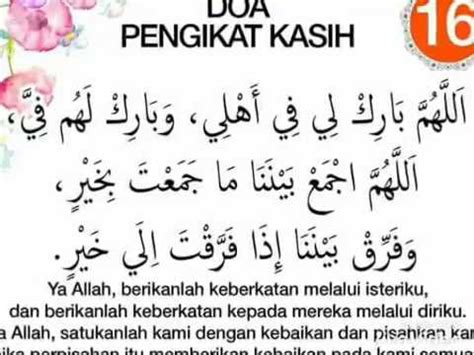 DOA
PENGIKAT KASIH
16
اَللَّهُمَّ بَارِكْ لِي فِي أَهْلِي، وَبَارِكْ لَهُم فِيَّ،
اَللَّهُمَّ اجْمَعْ بَيْنَنَا مَا جَمَعْتَ بِخَيْرٍ،
وَفَرِّقْ بَيْنَنَا إِذَا فَرَّقْتَ إِلَي خَيْرٍ.
Ya Allah, berikanlah keberkatan melalui isteriku,
dan berikanlah keberkatan kepada mereka melalui diriku.
a Allah, satukanlah kami dengan kebaikan dan pisahkan kan
ika perpisahan itu memberikan kebaikan pada kami